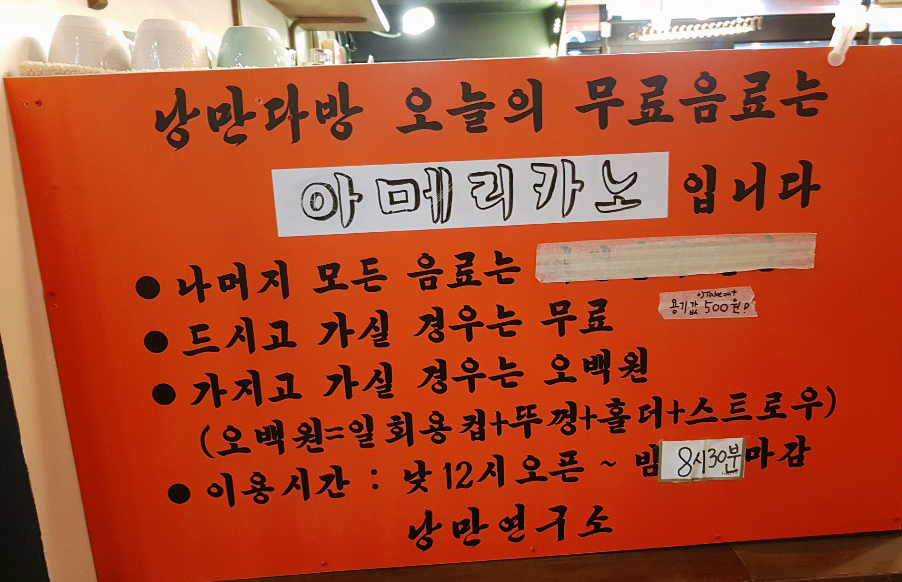 낭만다방 오늘의 무료음료는
아메리카노 입니다
● 나머지 모든 음료는
takeout
용기값 500원!
● 드시고 가실 경우는 무료
● 가지고 가실 경우는 오백원
(오백원=일회용컵+뚜껑+홀더+스트로우)
● 이용시간 : 낮12시오픈 ~ 밤 8시30분 마감
낭만연구소